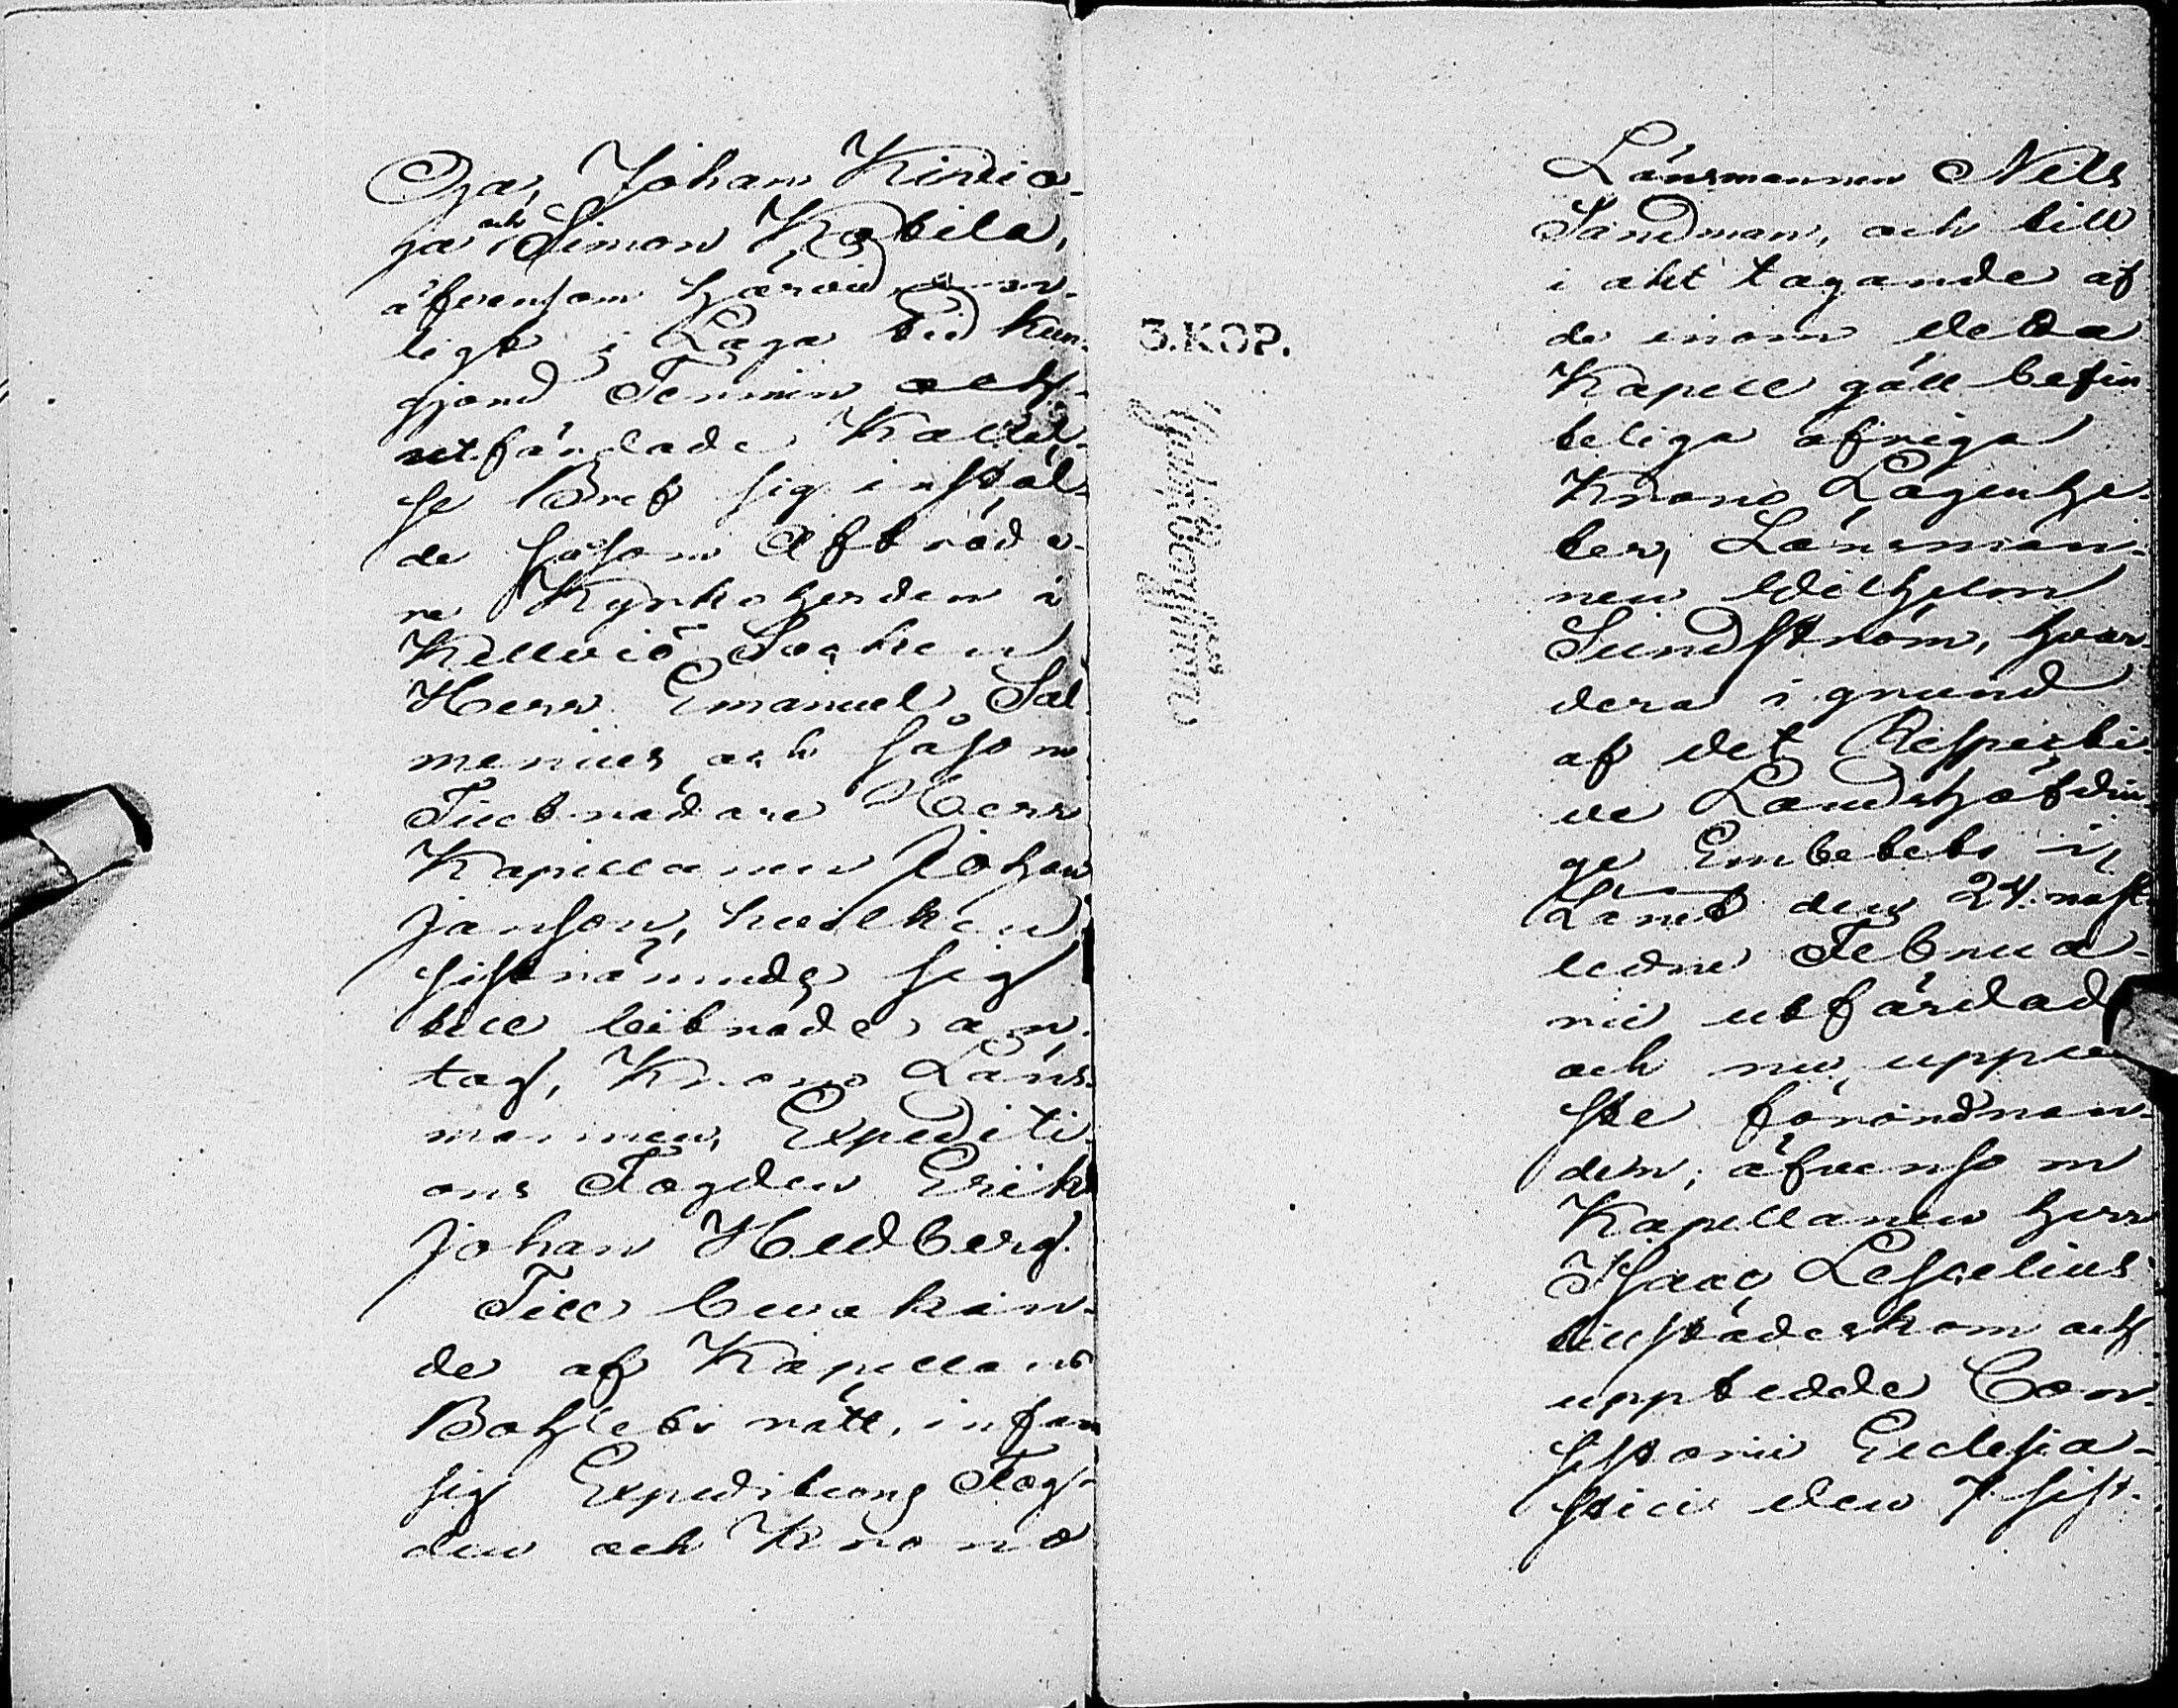 Oja, Johan Kinnia-
ja och Simon Kattila,
äfvensom härvid
ligt i Laga tid kun-
gjord Termin och
utfärdade Kallel-
se Bref sig instäl-
de såsom Afträda-
re Kyrkoherden i
Kellviö Socken
Herr Emanuel Sal-
menius och såsom
Tillträdare Herr
Kapellanen Johan
Janson, hvilken
sistnämnde sig
till biträde an-
tog, Krono Läns-
mannen, Expediti-
ons Fogden Erik
Johan Hedberg.
Till bevakan-
de af Kapellans
Bohlets rätt, infan
sig Expeditions Fog-
den och Krono
3.KOP.
Länsmannen Nils
Sandman, och till
i akt tagande af
de inom detta
Kapell gäll befin-
teliga öfriga
Krono Lägenhe-
ter, Länsman-
nen Wilhelm
Sundström, hvar-
dera i grund
af det Respecti-
ve Landshöfdin-
ge Embetets i
Länet den 24. näst-
ledne Februa-
rii utfärdade
och nu uppvi
ste förordnan-
den; äfvensom
Kapellanen herr
Isaac Lescelius
tillstädeskom och
upptedde Con-
sistorii Ecclesia-
stici den 7 sist-